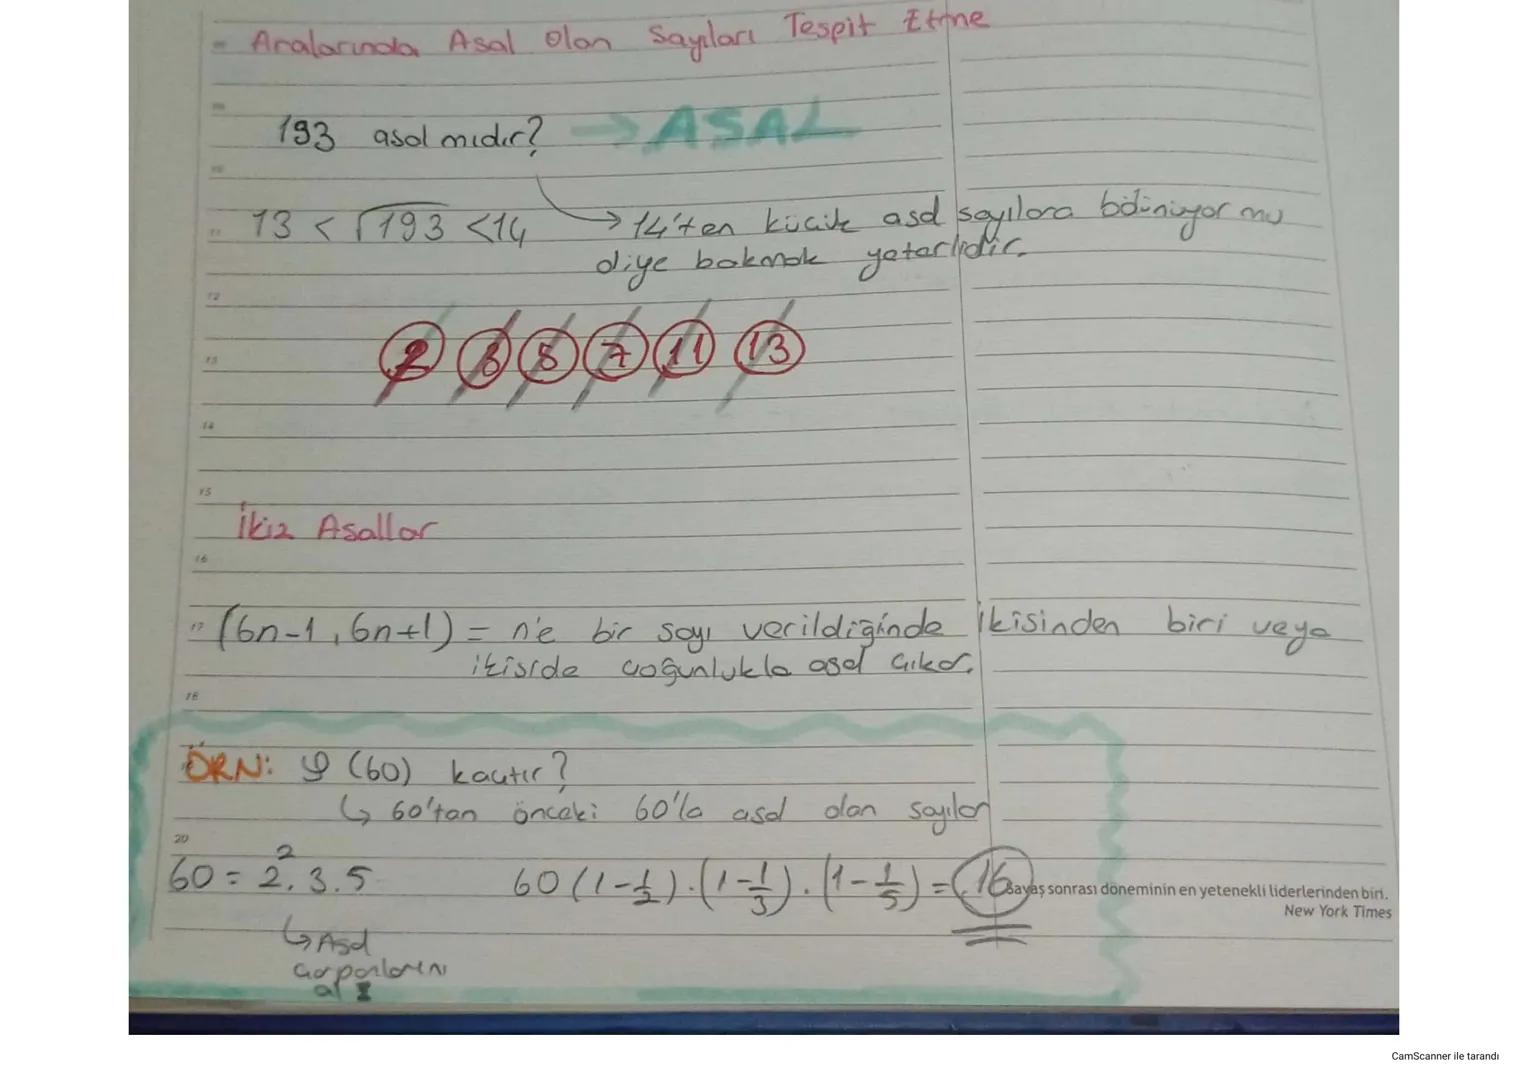 - Aralarında Asal Olan Sayıları Tespit Etme
193 asal mıdır? → ASAL
13 < √193 < 14 → 14'ten küçük asal sayılara bölünüyor mu
diye bakmak yeterlidir.
2 3 5 7 11 13
İkiz Asallar
(6n-1, 6n+1) = n'e bir sayı verildiğinde ikisinden biri veya
ikiside çoğunlukla asal çıkar.
ÖRN: φ (60) kaçtır?
↳ 60'tan önceki 60'la asal olan sayılar
60 = 2².3.5 60(1-1/2).(1-1/3).(1-1/5) = 16
Savaş sonrası döneminin en yetenekli liderlerinden biri.
New York Times
↳ Asal
çarpanlarını
al
12
13
14
15
16
17
18
20
CamScanner ile tarandı